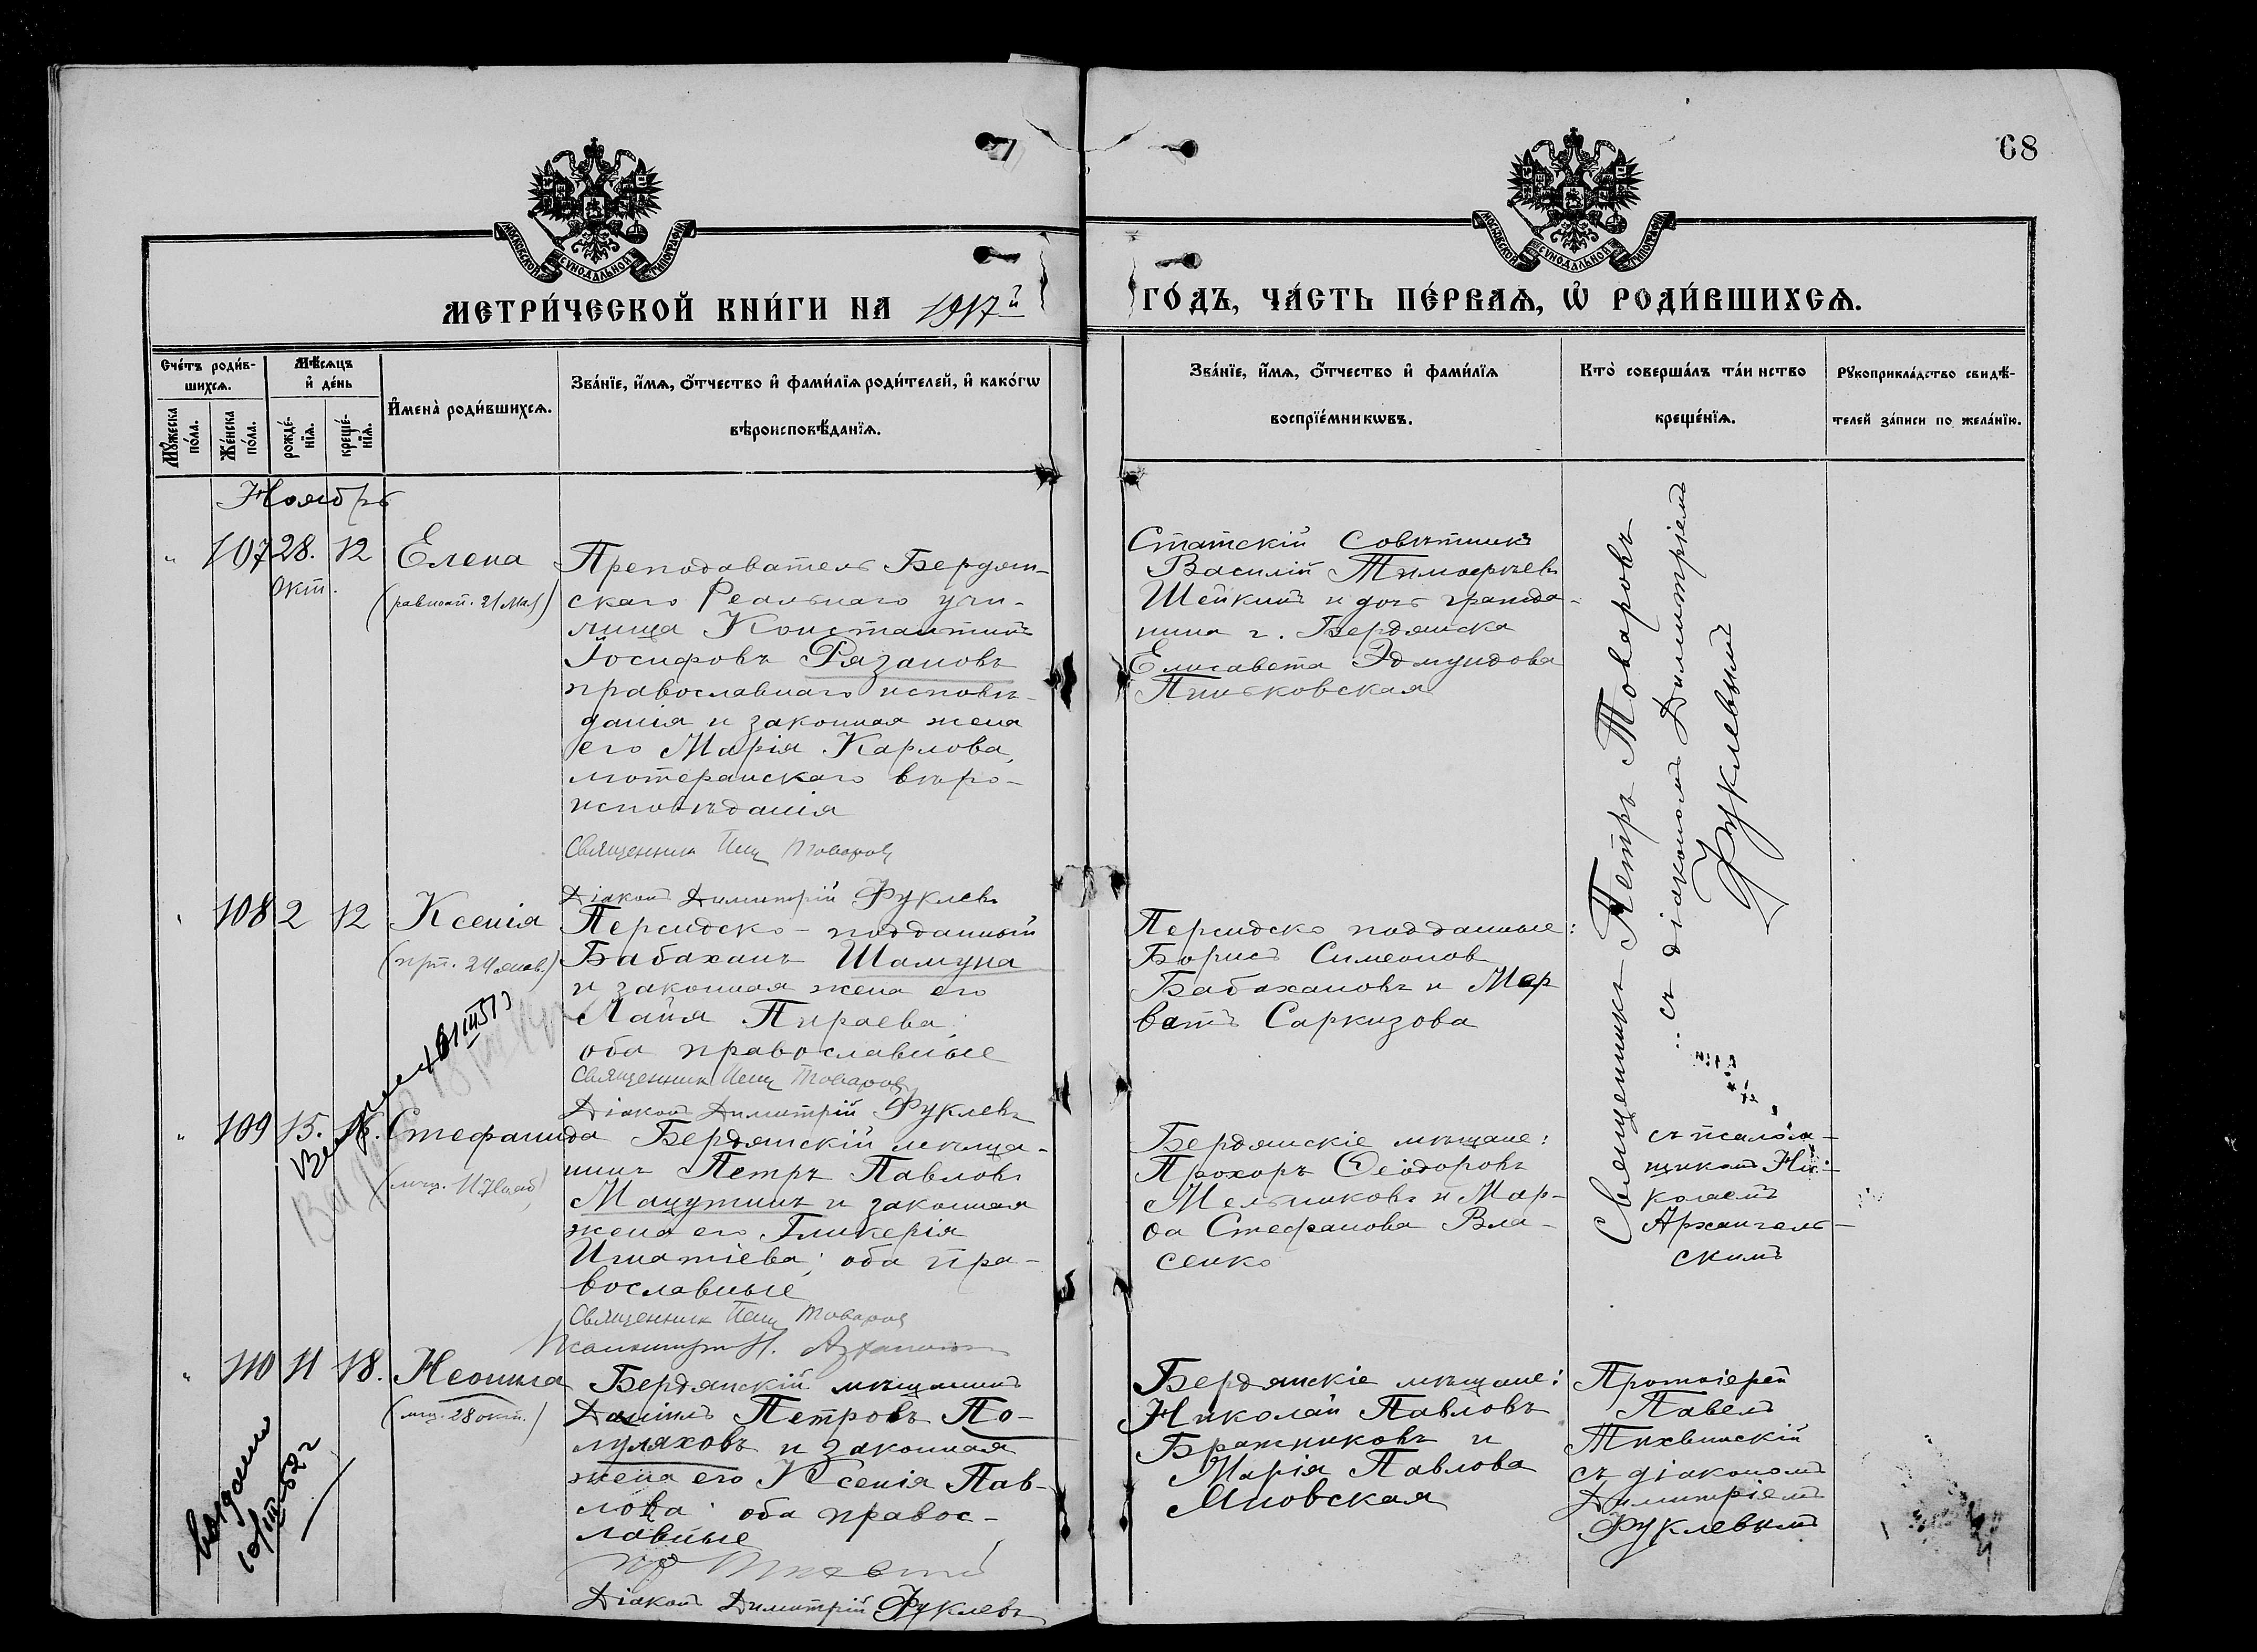 68
МОСКОВСКОЙ СѴНОДАЛЬНОЙ ТИПОГРАФІИ
МОСКОВСКОЙ СѴНОДАЛЬНОЙ ТИПОГРАФІИ
МЕТРИ́ЧЕСКОЙ КНИ́ГИ НА 1917й
ГО́ДЪ, ЧА́СТЬ ПЕ́РВАѦ, Ѡ҆ РОДИ́ВШИХСѦ.
Счéтъ роди́в-
шихсѧ.
Мꙋ́жеска
по́ла.
Же́нска
по́ла.
Мѣ́сѧцъ
и҆ де́нь
рожде́-
нїѧ.
креще́-
нїѧ.
И҆мена̀ роди́вшихсѧ.
Зва́нїе, и҆́мѧ, ѻ҆́тчество и҆ фамѝлїѧ роди́телей, и҆ како́гѡ
вѣроисповѣ́данїѧ.
Зва́нїе, и҆́мѧ, ѻ҆́тчество и҆ фами́лїѧ
воспрїе́мникѡвъ.
Кто̀ соверша́лъ та́инство
креще́нїѧ.
Рꙋкоприкла́дство свидѣ́-
телей за́писи по жела́нїю.
Ноябрь
" 107 28. 12 Елена
окт.
(равноап. 21 Мая)
Преподаватель Бердян-
скаго Реальнаго учи-
лища Константинъ
Іосифовъ Рязановъ
православнаго исповѣ-
данія и законная жена
его Марія Карлова,
лютеранскаго вѣро-
исповѣданія
Священник Петр Товаров
Діаконъ Димитрій Фуклевъ
Статскій Совѣтникъ
Василій Тимофеевъ
Шейкинъ и дочь гражда-
нина г. Бердянска
Елисавета Эдмундова
Пиньковская
Священникъ Петръ Товаровъ
съ діакономъ Димитріемъ
Фуклевымъ
" 108 2 12 Ксенія
(прп. 24 янв.)
Персидско-подданный
Бабаханъ Шамуна
и законная жена его
Лайя Пираева;
оба православные
Священник Петр Товаров
Діаконъ Димитрій Фуклевъ
Персидско подданные:
Борисъ Симеоновъ
Бабахановъ и Мар
ватъ Саркизова
" 109 15. 16. Стефанида
(мчц. 11 Нояб)
Бердянскій мѣща-
нинъ Петръ Павловъ
Мацутинъ и законная
жена его Гликерія
Игнатіева; оба пра-
вославные
Священник Петр Товаров
Псаломщикъ Н.
Бердянскіе мѣщане:
Прохоръ Ѳеодоровъ
Мельниковъ и Мар-
ѳа Стефанова Вла-
сенко
съ псалом-
щикомъ Ни-
колаемъ
Архангель-
скимъ
" 110 11 18. Неонила
(мчц. 28 окт.)
Бердянскій мѣщанинъ
Даніилъ Петровъ По-
луляховъ и законная
жена его Ксенія Пав-
лова; оба правос-
лавные
Діаконъ Димитрій Фуклевъ
Бердянскіе мѣщане:
Николай Павловъ
Бражниковъ и
Марія Павлова
Яновская
Протоіерей
Павелъ
Тихвинскій
съ діакономъ
Димитріемъ
Фуклевымъ
выдано
10/III-52 г